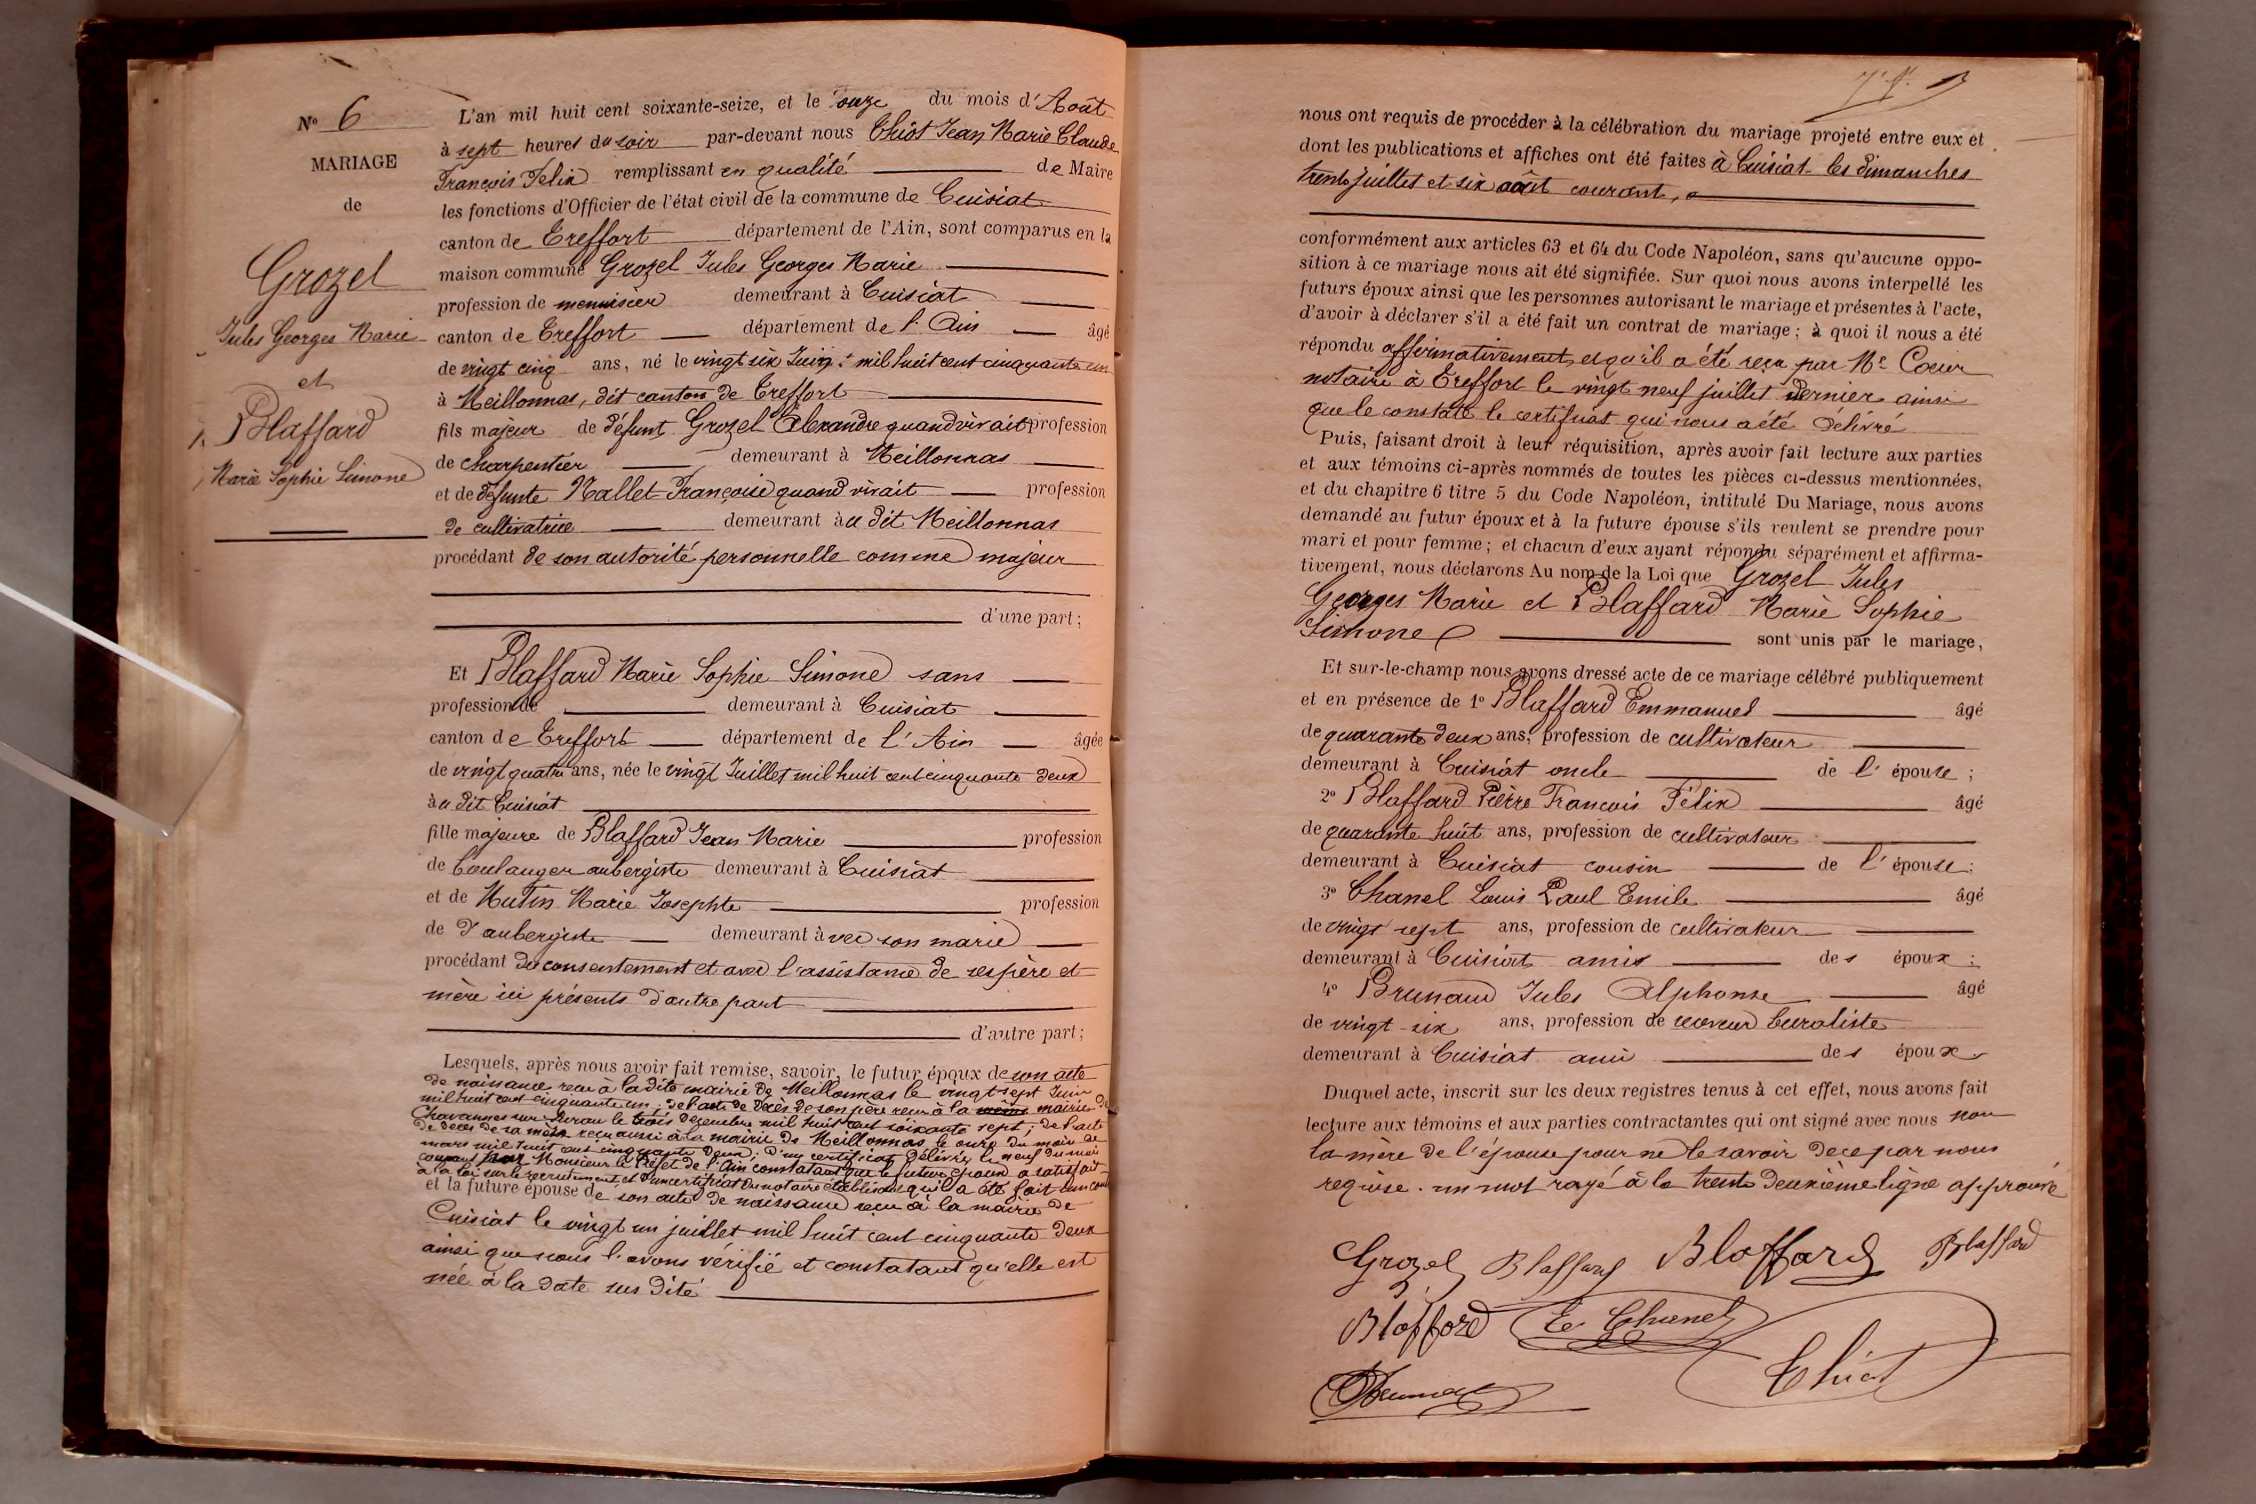 N° 6
MARIAGE
de
Grozel
Jules Georges Marie
et
Blaffard
Marie Sophie Simone
L'an mil huit cent soixante-seize, et le onze du mois d'Août
à sept heures du soir par-devant nous Chiot Jean Marie Claude
François Félix remplissant en qualité de Maire
les fonctions d'Officier de l'état civil de la commune de Cuisiat
canton de Treffort département de l'Ain, sont comparus en la
maison commune Grozel Jules Georges Marie
profession de menuisier demeurant à Cuisiat
canton de Treffort département de l'Ain âgé
de vingt cinq ans, né le vingt six Juin mil huit cent cinquante un
à Meillonnas, dit canton de Treffort
fils majeur de défunt Grozel Alexandre quand vivait profession
de charpentier demeurant à Meillonnas
et de défunte Mallet Françoise quand vivait profession
de cultivatrice demeurant àu dit Meillonnas
procédant de son autorité personnelle comme majeur
d'une part;
Et Blaffard Marie Sophie Simone sans
profession de demeurant à Cuisiat
canton de Treffort département de l'Ain âgée
de vingt quatre ans, née le vingt Juillet mil huit cent cinquante deux
àu dit Cuisiat
fille majeure de Blaffard Jean Marie profession
de boulanger aubergiste demeurant à Cuisiat
et de Mutin Marie Josephte profession
de d'aubergiste demeurant àvec son marie
procédant du consentement et avec l'assistance de ses père et
mère ici présents d'autre part
d'autre part;
Lesquels, après nous avoir fait remise, savoir, le futur époux de son acte
de naissance reçu à la dite mairie de Meillonnas le vingt sept Juin
mil huit cent cinquante un; de l'acte de décès de son père reçu à la même mairie de
Chavannes sur Suran le trois Décembre mil huit cent soixante sept; de l'acte
de décès de sa mère reçu aussi à la mairie de Meillonnas le onze du mois de
mars mil huit cent cinquante deux; D'un certificat délivré le neuf du mois
courant par Monsieur le Préfet de l'Ain constatant que le futur époux a satisfait
à la loi sur le recrutement et d'un certificat du notaire établissant qu'il a été fait un
et la future épouse de son acte de naissance reçu à la mairie de
Cuisiat le vingt un juillet mil huit cent cinquante deux
ainsi que nous l'avons vérifié et constatant qu'elle est
née à la date sus dite
nous ont requis de procéder à la célébration du mariage projeté entre eux et
dont les publications et affiches ont été faites à Cuisiat les dimanches
trente juillet et six août courant,
conformément aux articles 63 et 64 du Code Napoléon, sans qu'aucune oppo-
sition à ce mariage nous ait été signifiée. Sur quoi nous avons interpellé les
futurs époux ainsi que les personnes autorisant le mariage et présentes à l'acte,
d'avoir à déclarer s'il a été fait un contrat de mariage; à quoi il nous a été
répondu affirmativement, et qu'il a été reçu par Me Coeur
notaire à Treffort le vingt neuf juillet dernier ainsi
que le constate le certificat qui nous a été délivré
Puis, faisant droit à leur réquisition, après avoir fait lecture aux parties
et aux témoins ci-après nommés de toutes les pièces ci-dessus mentionnées,
et du chapitre 6 titre 5 du Code Napoléon, intitulé Du Mariage, nous avons
demandé au futur époux et à la future épouse s'ils veulent se prendre pour
mari et pour femme; et chacun d'eux ayant répondu séparément et affirma-
tivement, nous déclarons Au nom de la Loi que Grozel Jules
Georges Marie et Blaffard Marie Sophie
Simone sont unis par le mariage,
Et sur-le-champ nous avons dressé acte de ce mariage célébré publiquement
et en présence de 1° Blaffard Emmanuel âgé
de quarante deux ans, profession de cultivateur
demeurant à Cuisiat oncle de l'épouse;
2° Blaffard Pierre François Félix âgé
de quarante huit ans, profession de cultivateur
demeurant à Cuisiat cousin de l'épouse;
3° Chanel Louis Paul Emile âgé
de vingt sept ans, profession de cultivateur
demeurant à Cuisiat amis des époux;
4° Brunaud Jules Alphonse âgé
de vingt six ans, profession de buraliste
demeurant à Cuisiat ami des époux
Duquel acte, inscrit sur les deux registres tenus à cet effet, nous avons fait
lecture aux témoins et aux parties contractantes qui ont signé avec nous non
la mère de l'épouse pour ne le savoir de ce par nous
requise. un mot rayé à la trente deuxième ligne approuvé
Grozel Blaffard Blaffard Blaffard
Blaffard E Chanel
Chiot
Brunaud